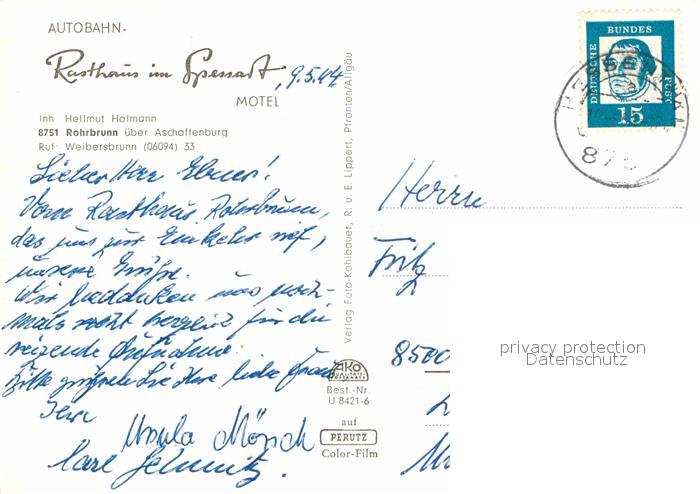 AUTOBAHN-
Rasthaus im Spessart, 9.5.64.
MOTEL
Inh. Hellmut Hofmann
8751 Rohrbrunn über Aschaffenburg
Ruf: Weibersbrunn (06094) 33
Lieber Herr Ebner!
Vom Rasthaus Rohrbrunn,
das uns zur Einkehr rief,
unsere Grüße.
Wir bedanken uns noch-
mals recht herzlich für die
reizende Aufnahme.
Bitte grüßen Sie Ihre liebe Frau
Ihre
Ursula Mörsch
Carl Schmitz.
Verlag Foto-Kohlbauer, R. u. E. Lippert, Pfronten/Allgäu
AKO
Best.-Nr
U 8421-6
auf
PERUTZ
Color-Film
DEUTSCHE
BUNDES
POST
15
875
Herrn
Fritz
8500
privacy protection
Datenschutz